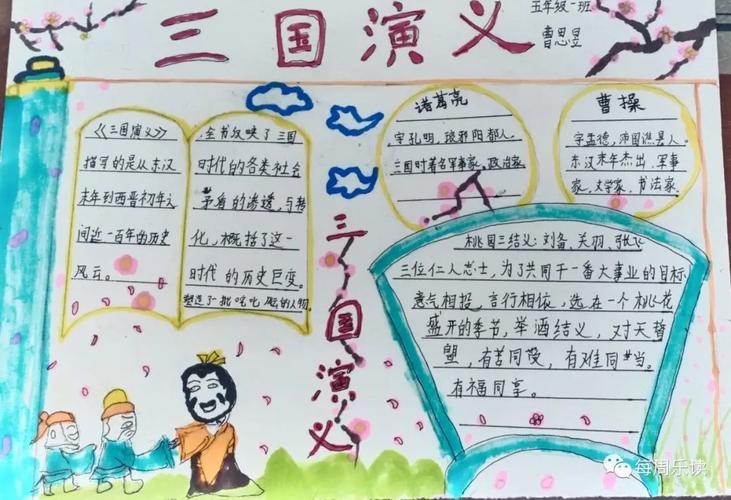 三国演义
五年级一班
曹思昱
《三国演义》
描写的是从东汉
末年到西晋初年之
间近一百年的历史
风云。
全书反映了三国
时代的各类社会
矛盾的渗透与转
化,概括了这一
时代的历史巨变。
塑造了一批叱咤风云的人物
三国演义
诸葛亮
字孔明,琅琊阳都人。
三国时著名军事家、政治家
曹操
字孟德,沛国谯县人。
东汉末年杰出、军事
家、文学家、书法家
桃园三结义:刘备、关羽、张飞
三位仁人志士,为了共同干一番大事业的目标
意气相投,言行相依,选在一个桃花
盛开的季节,举酒结义,对天
盟,有苦同受,有难同当。
有福同享。
每周乐读